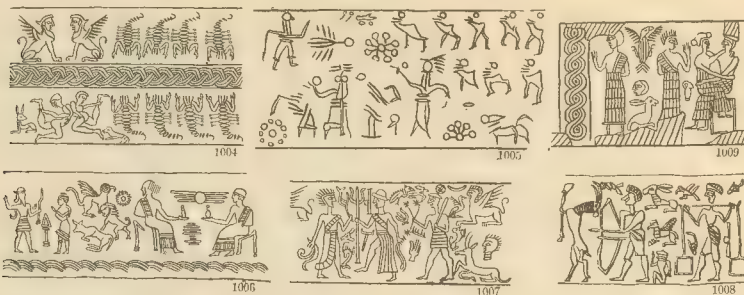 1004
1005
1009
1006
1007
1008